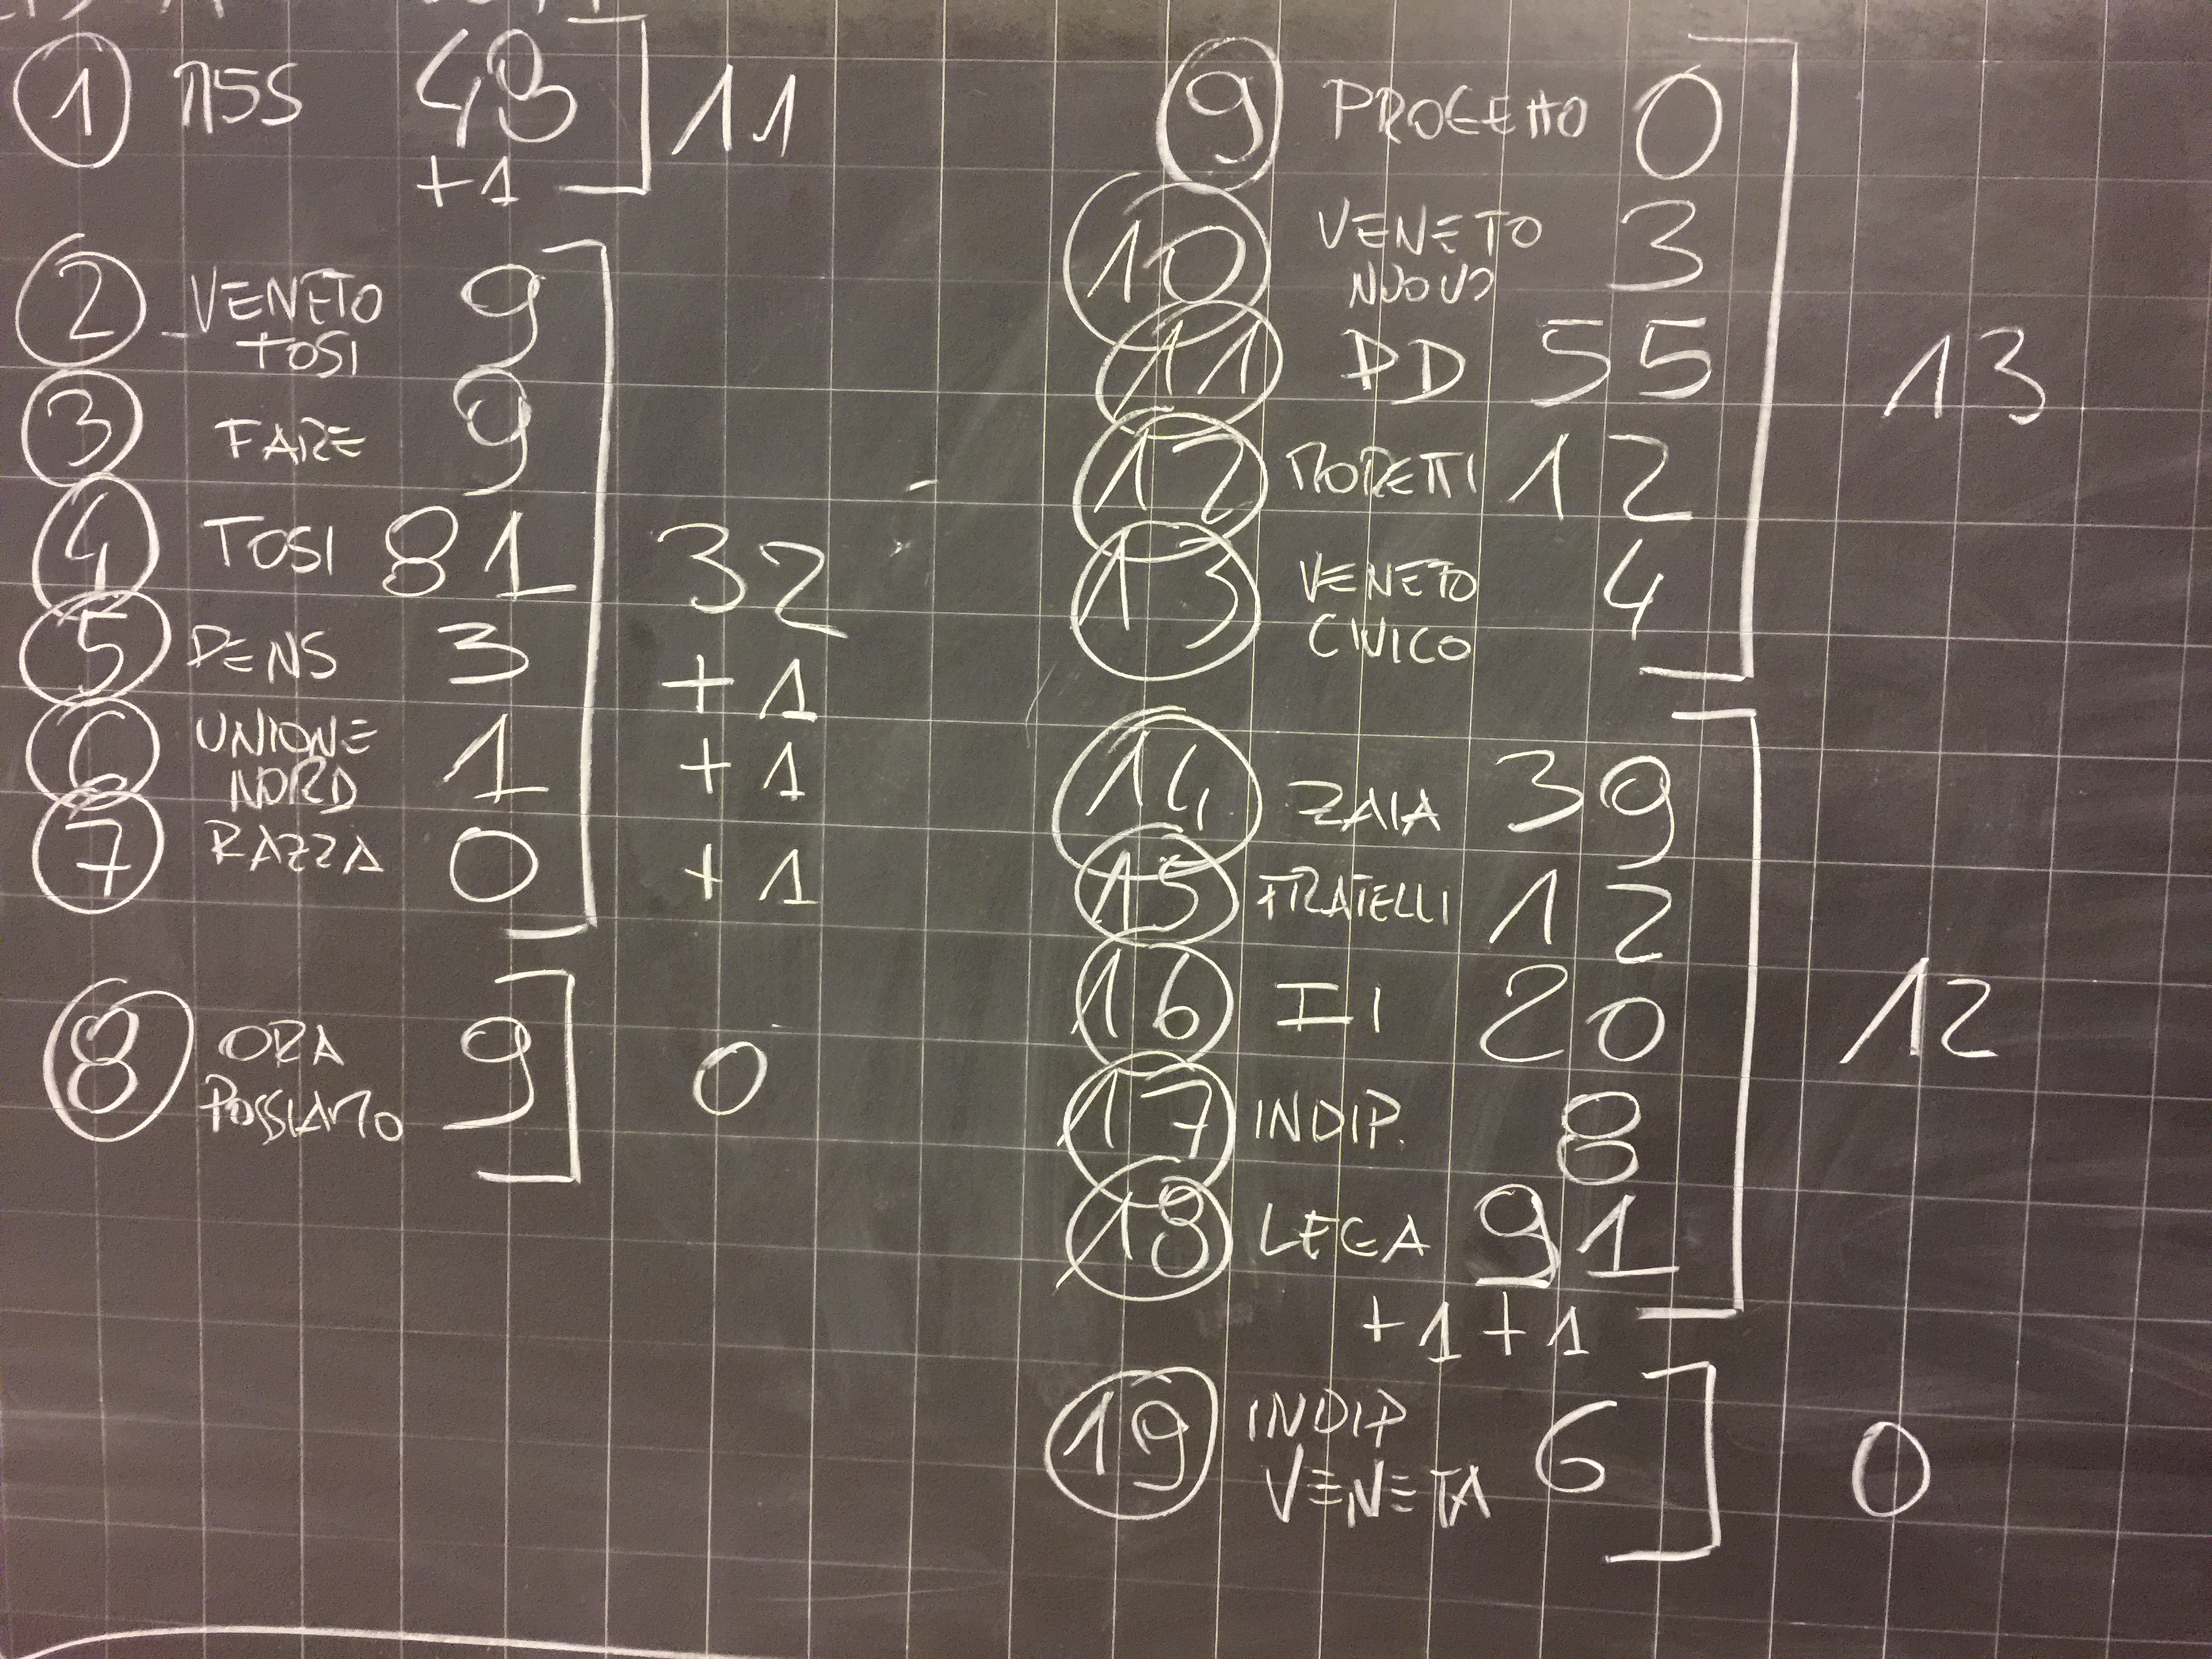 1 M5S 48 11
+1
2 VENETO 9
TOSI
3 FARE 9
4 TOSI 81 32
5 PENS 3 +1
6 UNIONE 1 +1
NORD
7 RAZZA 0 +1
8 ORA 9 0
POSSIAMO
9 PROGETTO 0
10 VENETO 3
NUOVO
11 PD 55 13
12 MORETTI 12
13 VENETO 4
CIVICO
14 ZAIA 39
15 FRATELLI 12
16 FI 20 12
17 INDIP. 8
18 LEGA 91
+1 +1
19 INDIP 6 0
VENETA